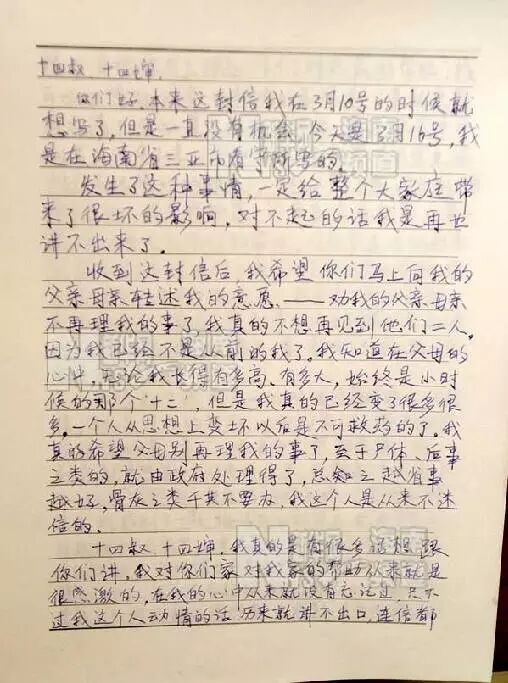 十四叔、十四婶.
你们好.本来这封信我在3月10号的时候就
想写了,但是一直没有机会.今天是3月16号,我
是在海南省三亚市看守所里的.
发生了这种事情,一定给整个大家庭带
来了很坏的影响,对不起的话我是再也
讲不出来了.
收到这封信后,我希望你们马上向我的
父亲母亲转述我的意愿.——劝我的父亲母亲
不再理我的事了,我真的不想再见到他们二人.
因为我已经不是从前的我了.我知道在父母的
心中,无论我长得有多高、有多大,始终是小时
候的那个"十二",但是我真的已经变了很多很
多.一个人从思想上变坏以后是不可救药的了.我
真的希望父母别再理我的事了,至于尸体、后事
之类的,就由政府处理得了,总之越省事
越好,骨灰之类千其不要办,我这个人是从来不迷
信的.
十四叔、十四婶,我真的是有很多话想跟
你们讲,我对你们家对我家的帮助从来就是
很感激的,在我的心中从来就没有忘记过,只不
过我这个人动情的话历来就讲不出口,连信都